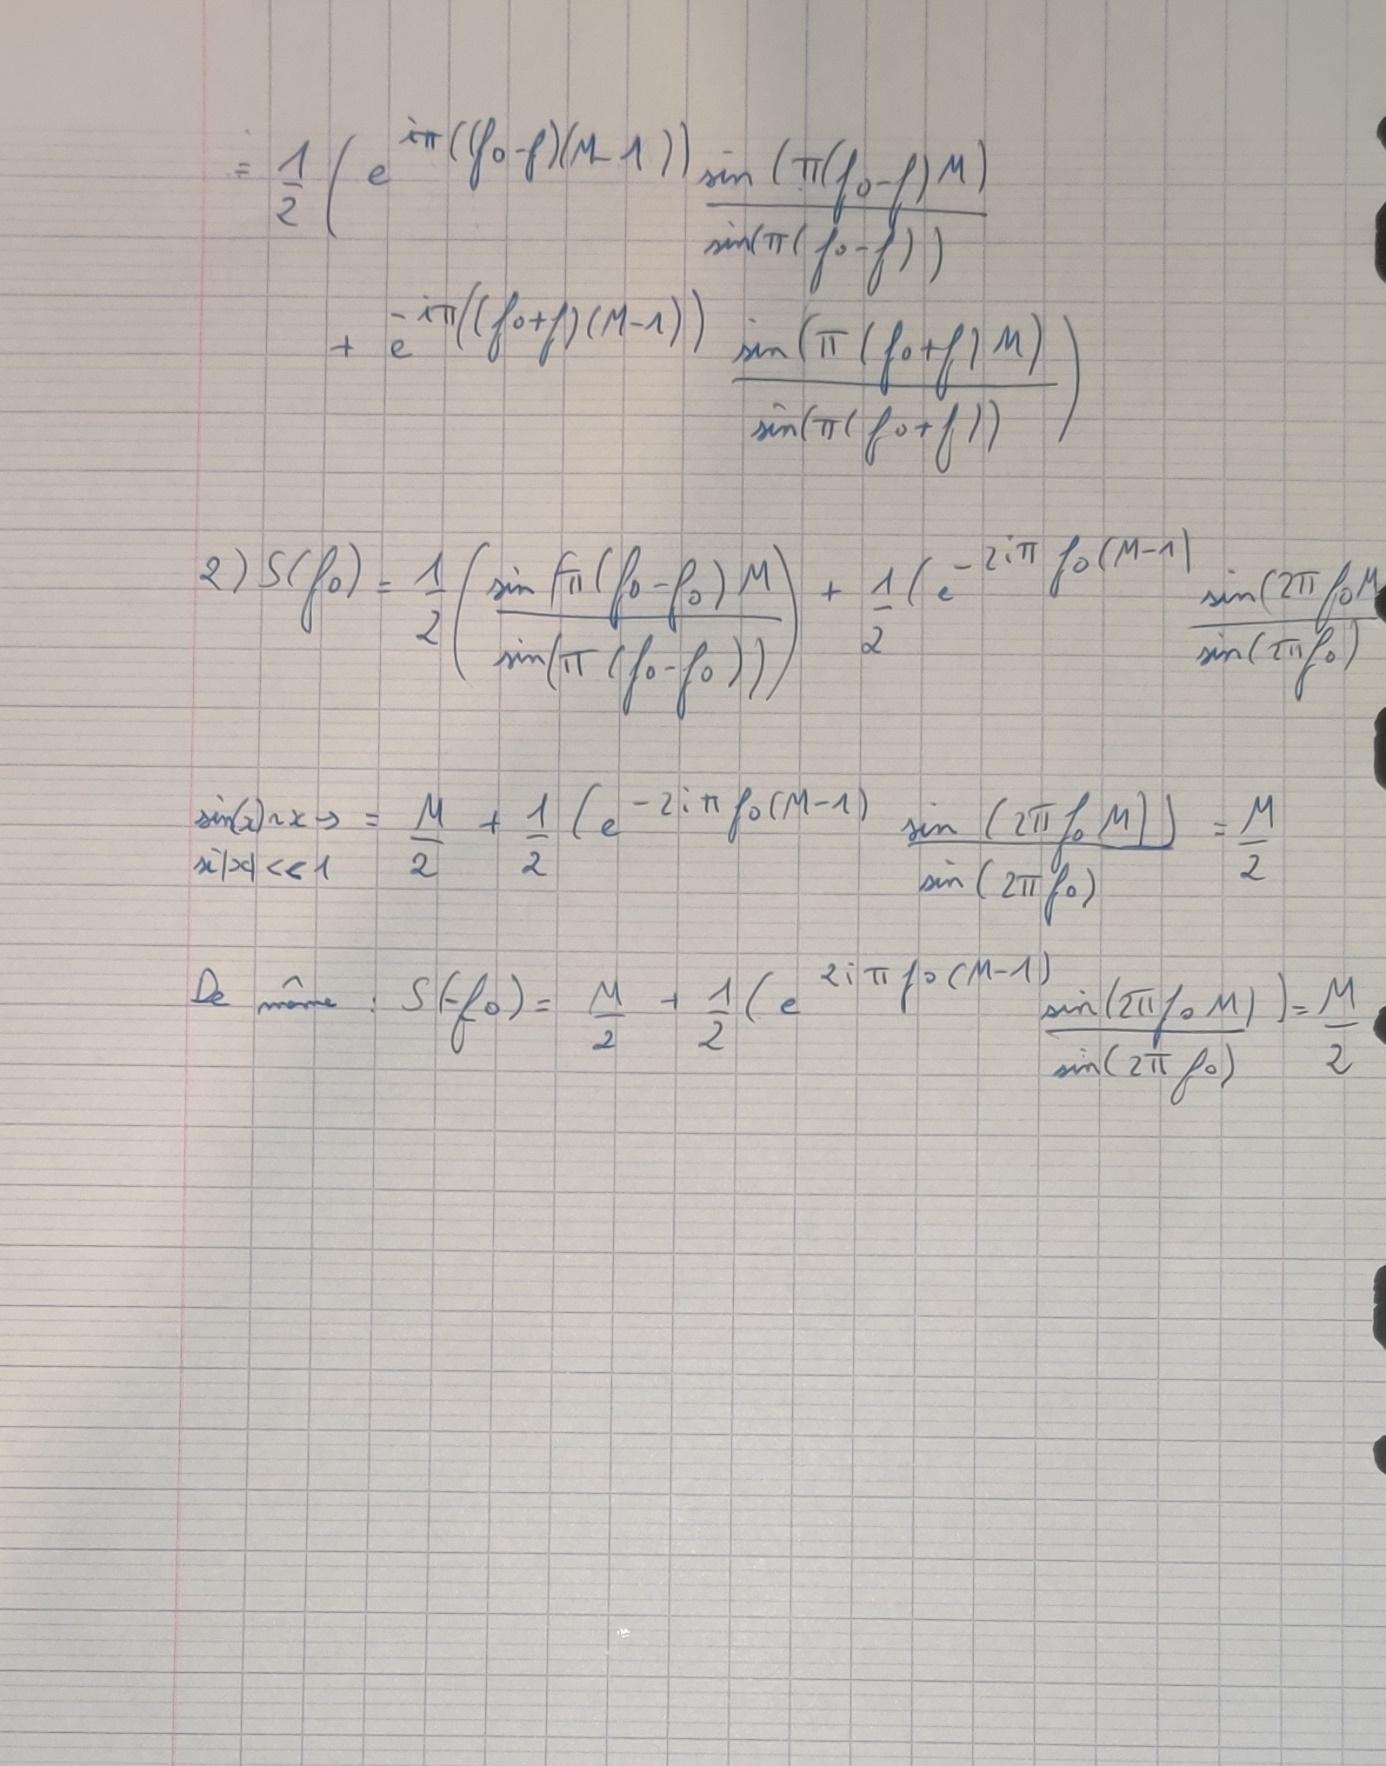 = 1/2 ( e^{iπ((f0-f)(M-1))} sin(π(f0-f)M) / sin(π(f0-f))
+ e^{-iπ((f0+f)(M-1))} sin(π(f0+f)M) / sin(π(f0+f)) )
2) S(f0) = 1/2 ( sin(π(f0-f0)M / sin(π(f0-f0)) ) + 1/2 ( e^{-2iπf0(M-1)} sin(2πf0M / sin(2πf0)
sin(x)~x → = M/2 + 1/2 ( e^{-2iπf0(M-1)} sin(2πf0M) / sin(2πf0) ) = M/2
si |x| << 1
De même : S(-f0) = M/2 + 1/2 ( e^{2iπf0(M-1)} sin(2πf0M) / sin(2πf0) ) = M/2